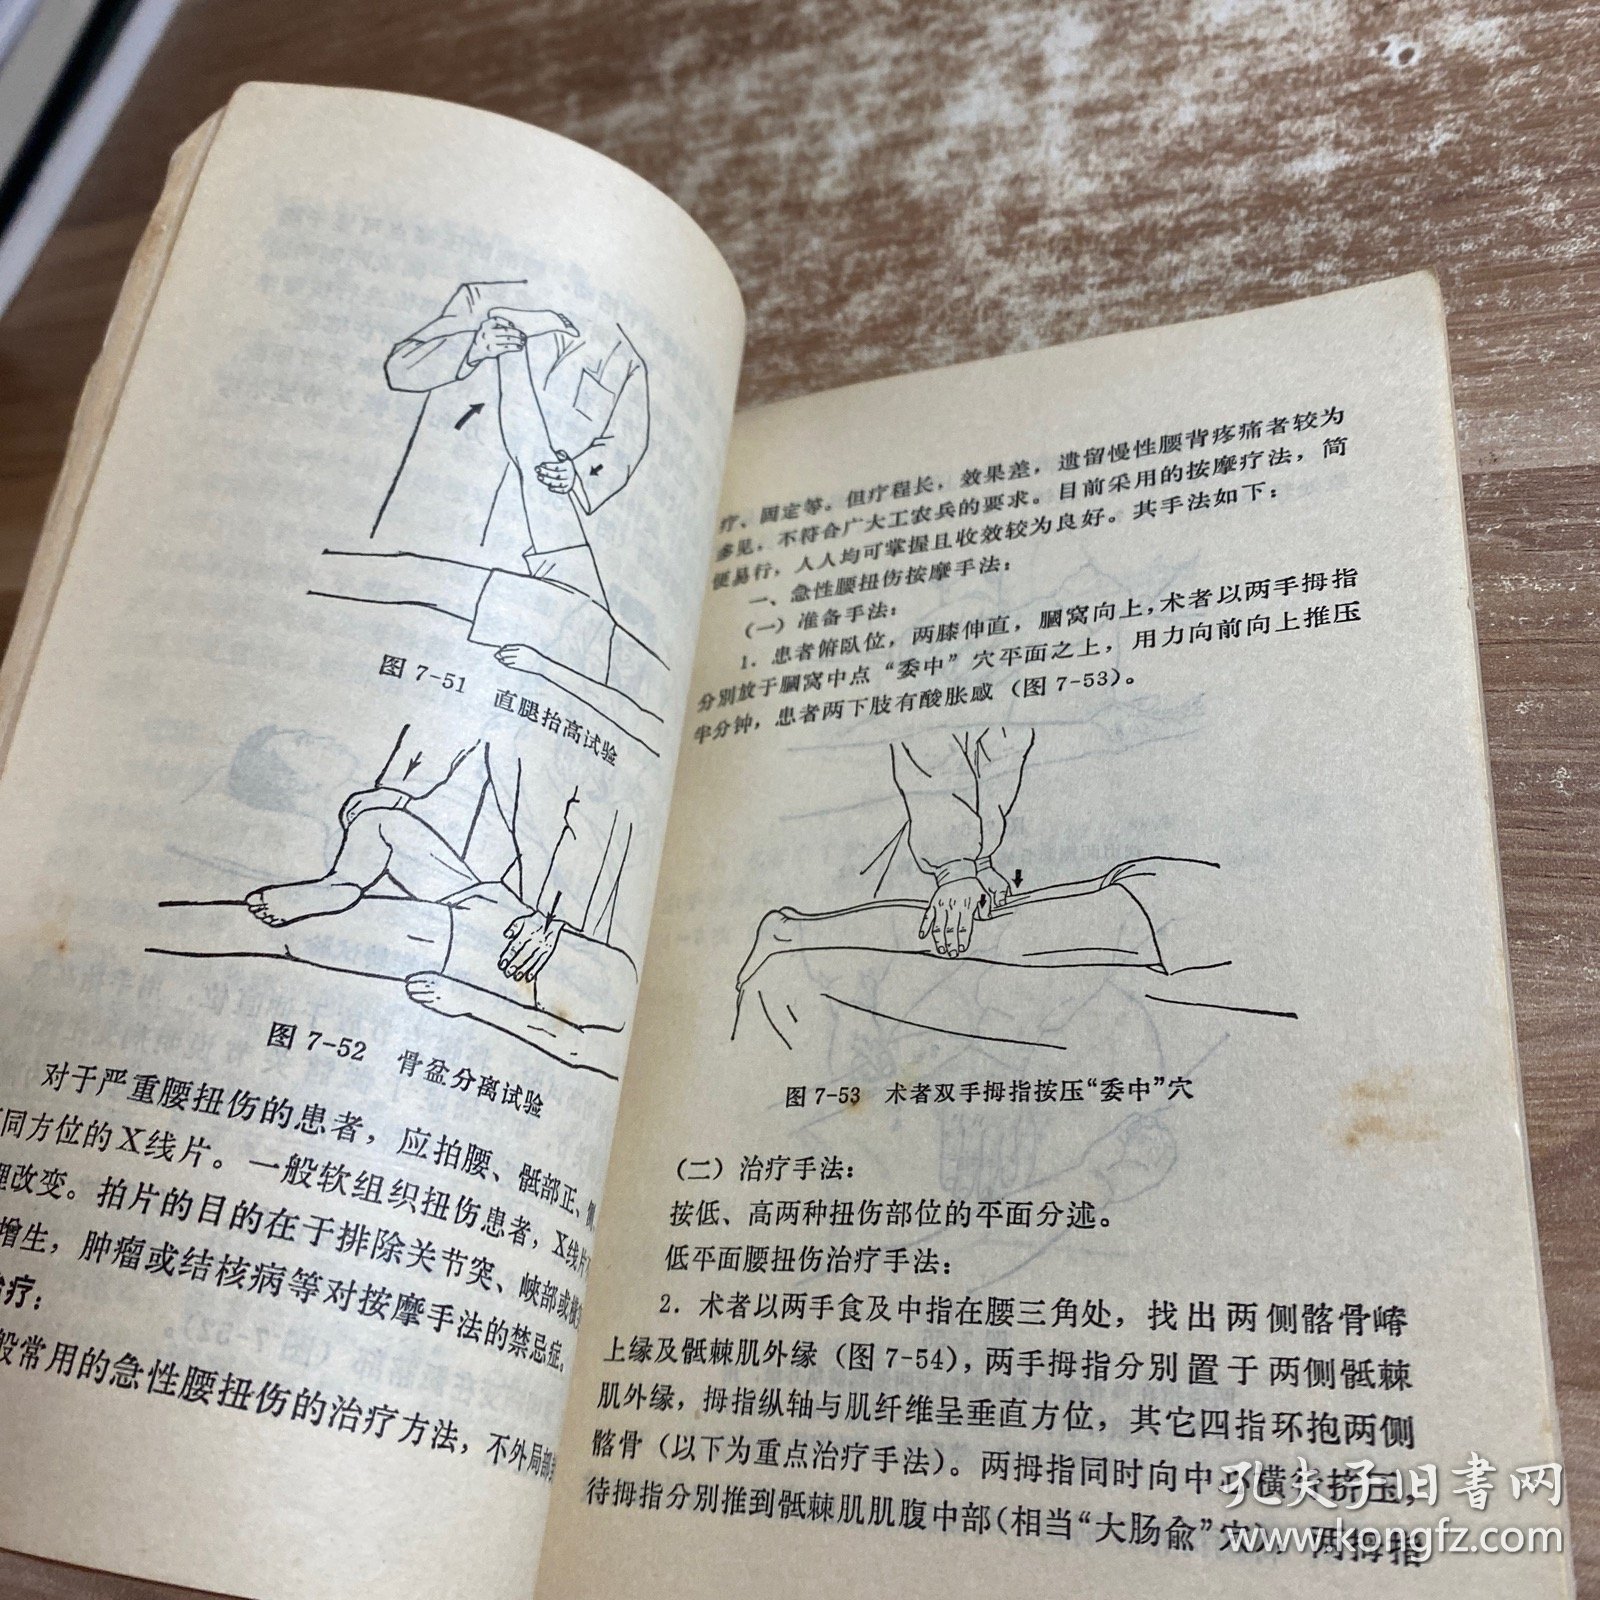 图 7-51 直腿抬高试验
图 7-52 骨盆分离试验
对于严重腰扭伤的患者，应拍腰、骶部正、侧
同方位的X线片。一般软组织扭伤患者，X线片
改变。拍片的目的在于排除关节突、峡部或横
增生，肿瘤或结核病等对按摩手法的禁忌症。
疗：
般常用的急性腰扭伤的治疗方法，不外局部
疗、固定等。但疗程长，效果差，遗留慢性腰背疼痛者较为
多见，不符合广大工农兵的要求。目前采用的按摩疗法，简
便易行，人人均可掌握且收效较为良好。其手法如下：
一、急性腰扭伤按摩手法：
（一）准备手法：
1．患者俯卧位，两膝伸直，腘窝向上，术者以两手拇指
分别放于腘窝中点“委中”穴平面之上，用力向前向上推压
半分钟，患者两下肢有酸胀感（图7-53）。
图 7-53 术者双手拇指按压“委中”穴
（二）治疗手法：
按低、高两种扭伤部位的平面分述。
低平面腰扭伤治疗手法：
2．术者以两手食及中指在腰三角处，找出两侧髂骨嵴
上缘及骶棘肌外缘（图7-54），两手拇指分别置于两侧骶棘
肌外缘，拇指纵轴与肌纤维呈垂直方位，其它四指环抱两侧
髂骨（以下为重点治疗手法）。两拇指同时向中央横行挤压，
待拇指分别推到骶棘肌肌腹中部（相当“大肠俞”穴），两拇指
孔夫子旧书网
www.kongfz.com